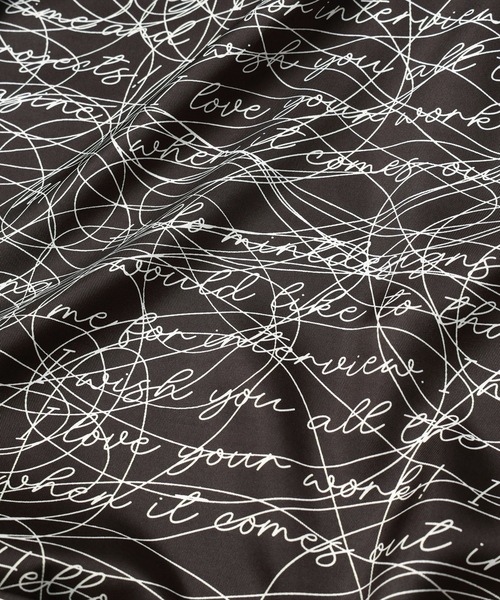 time and for interview
projects! wish you all t
I love your work
when it comes ou
would like to tha
me for interview. I h
I wish you all the
I love your work! I
when it comes out in
Hello